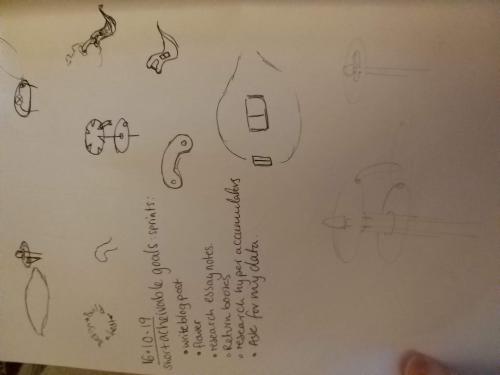 16·10·19
short acheivable goals: sprints:
• write blog post
• flower
• research essay notes.
• Return books
• research hyper accumulators
• Ask for my data.